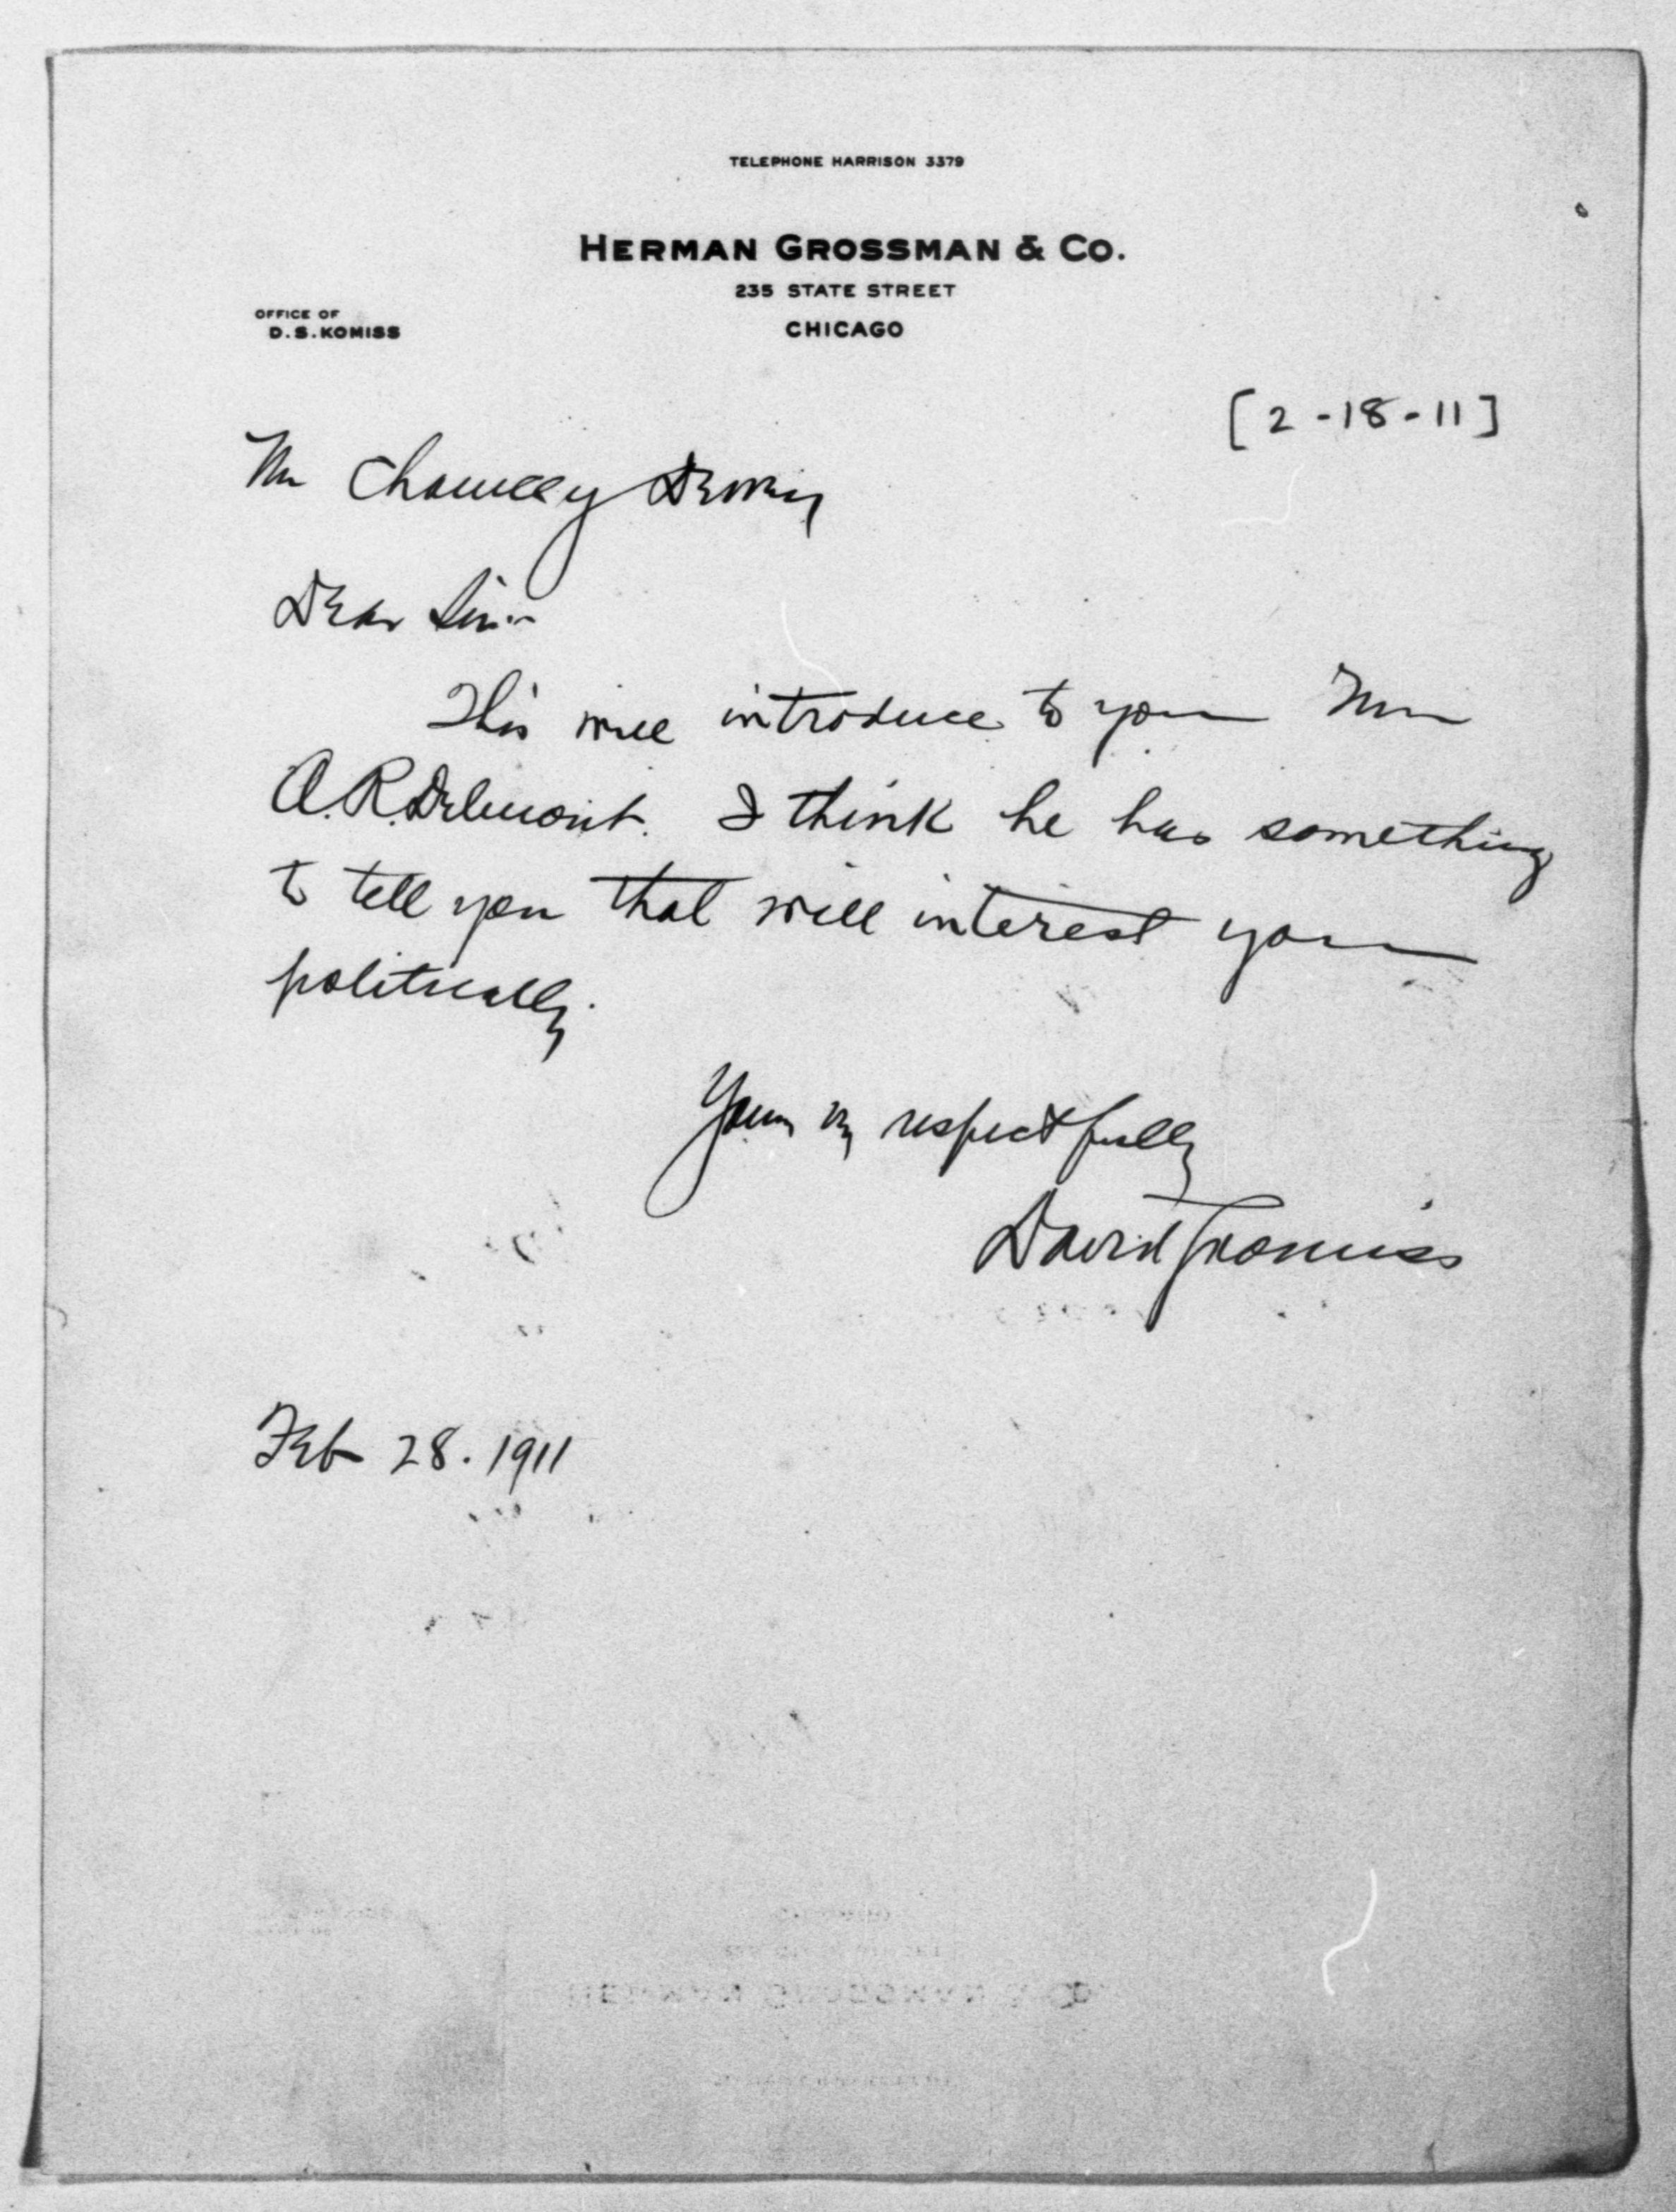 TELEPHONE HARRISON 3379
HERMAN GROSSMAN & CO.
235 STATE STREET
CHICAGO
OFFICE OF
D. S. KOMISS
[2-18-11]
Mr Chauncey Dewey
Dear Sir:-
This will introduce to you Mr
A. R. Delmont. I think he has something
to tell you that will interest you
politically.
Yours vy respectfully
David S Komiss
Feb 28. 1911